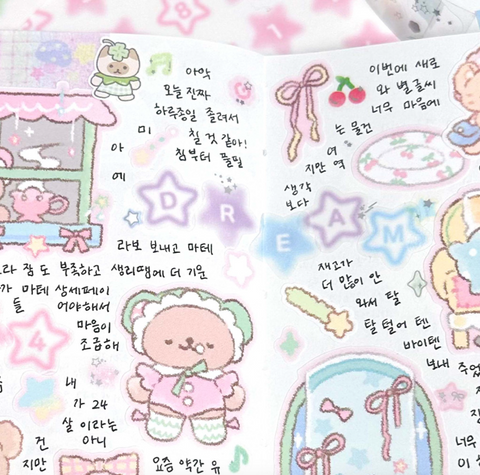 아악
오늘 진짜
하루종일 졸려서
미칠 것 같아!
아침부터 풀필
에
라보 보내고 마테
라 잠도 부족하고 생리땜에 더 기운
가 마테 상세페이
들어야해서
마음이
조급해
4
내
가 24
살 이라는
건 아니
지만 요즘 약간 유
DREAM
이번에 새로
와 별글씨
너무 마음에
는 물건
여
지만 역
생각
보다
재고가
더 많이 안
와서 탈
탈 털어 텐
바이텐
보내
너무